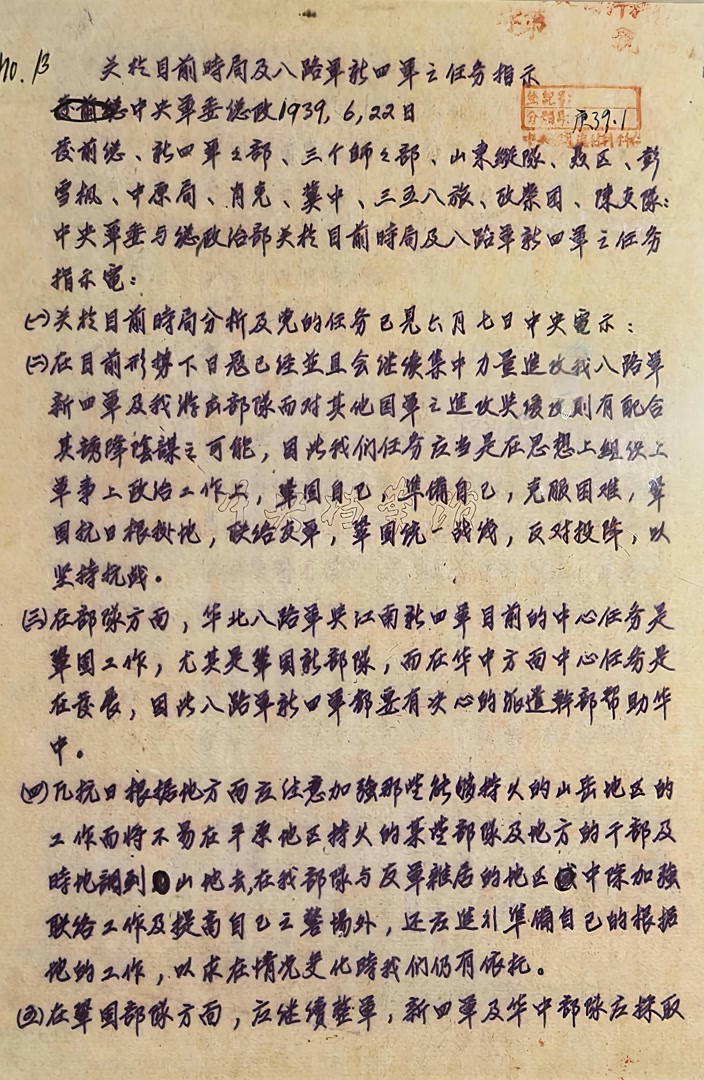 No. 13
关於目前時局及八路軍新四軍之任务指示
中央軍委總政1939,6,22日
登記号:
分類号: 庚39·1
發前總、新四軍之部、三个師之部、山東縱隊、
彭
雪楓、中原局、肖克、冀中、三五八旅、政榮团、陳支隊:
中央軍委与總政治部关於目前時局及八路軍新四軍之任务
指示電:
(一)关於目前時局分析及党的任务已見六月七日中央電示:
(二)在目前形勢下日寇已經並且会继续集中力量進攻我八路軍
新四軍及我游击部隊而对其他国軍之進攻
则有配合
其誘降陰謀之可能,因此我们任务应当是在思想上組织上
軍事上政治工作上,鞏固自己,準備自己,克服困难,鞏
固抗日根拠地,联络友軍,鞏固统一战线,反对投降,以
坚持抗战。
中央档案馆
(三)在部隊方面,华北八路軍與江南新四軍目前的中心任务是
鞏固工作,尤其是鞏固新部隊,而在华中方面中心任务是
在發展,因此八路軍新四軍都要有决心的派遣幹部帮助华
中。
(四)凡抗日根据地方面应注意加强那些能够持久的山岳地区的
工作而将不易在平原地区持久的某些部隊及地方的干部及
時地調到山地去,在我部隊与友軍雜居的地区中除加強
联络工作及提高自己之警惕外,还应進行準備自己的根据
地的工作,以求在情况变化時我们仍有依托。
(五)在鞏固部隊方面,应继續整軍,新四軍及华中部隊应採取